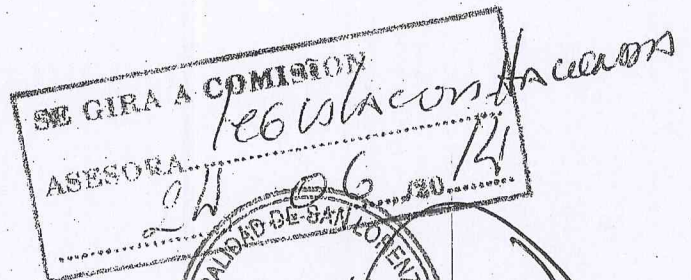 SE GIRA A COMISION
Legislacion Hacienda
ASESORA
24 06 /20 14
ALIDAD DE SAN LORENZ